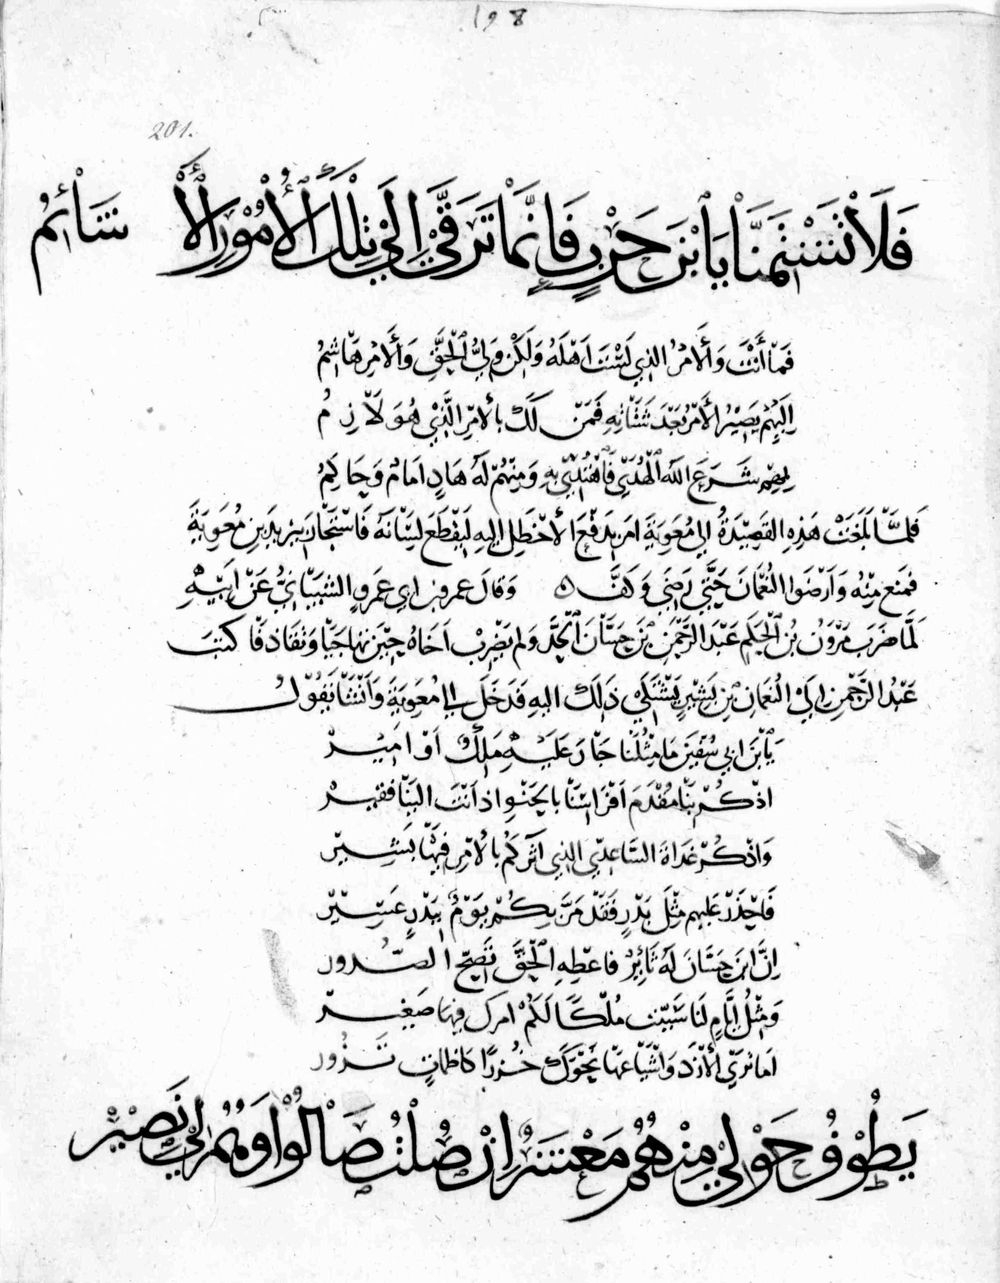 ١٩٨
201.
فَلَا تَشْتِمَنَّا يَا ٱبْنَ حَرْبٍ فَإِنَّمَا تَرَقَّى إِلَى تِلْكَ ٱلْأُمُورِ ٱلْأَشَائِمُ
فَمَا أَنْتَ وَٱلْأَمْرُ الذي لَسْتَ أَهْلَهُ وَلَكِنْ وَلِيُّ ٱلْحَقِّ وَٱلْأَمْرِ هَاشِمُ
إِلَيْهِمْ يَصِيْرُ الأَمْرُ بَعْدَ شَتَاتِهِ فَمَنْ لَكَ بالأَمْرِ الَّذِيْ هُوَ لَازِمُ
بِهِمْ شَرَعَ اللهُ ٱلْهُدَى فَٱهْتُدِيَ بِهِ وَمِنْهُمْ لَهُ هَادٍ اِمَامٌ وَخَاتِمُ
فَلمَّا بَلَغَتْ هَذِهِ القَصِيْدَةُ إلى مُعَوِيَةَ امر بِدَفْعِ الأَخْطَلِ إليه لِيَقْطَعَ لِسَانَهُ فَاسْتَجَارَ بِيَزِيدَ بْنِ مُعَوِيَةَ
فمنع مِنْهُ وَأَرْضَوا النُّعْمَانَ حَتَّى رَضِيَ وَكَفَّ ۞ وَقَالَ عمرو بن ابي عَمْرٍو الشيبَانيُّ عَنْ ابِيْهِ
لَمَّا ضَرَبَ مَرْوَنُ بْنُ ٱلْحَكَمِ عَبْدَ الرَّحْمَنِ بْنَ حَسَّانَ ٱلْحَدَّ وَلم يَضْرِبْ اَخَاهُ حِيْنَ تهاجَيَا وَتَقَاذَفَا كتبَ
عَبْدُ الرَّحْمَنِ إِلَى النُّعْمَانِ بْنِ بَشِيْرٍ يَشْتَكِي ذَلِكَ اليهِ فَدَخَلَ إلى مُعَوِيَةَ وَأَنْشَأَ يَقُوْلُ
يَا ٱبْنَ ابي سُفْيَنَ مَا مِثْلُنَا جَارَ عَلَيْهِ مَلِكٌ أَوْ امِيْرْ
اذْكُرْ بِنَا مُقْدَمَ اَفْرَاسِنَا بِالْحِنْوِ اذ اَنْتَ الينَا فقيرْ
وَاذْكُرْ غَدَاةَ السَّاعِدِيِّ الذي آثَرَكُمْ بِالأَمْرِ فِيْهَا بَشِيْرْ
فَاحْذَرْ عَليهم مِثْلَ بَدْرٍ فَقَدْ مَرَّ بِكُمْ يَوْمٌ بِبَدْرٍ عَسِيْرْ
إِنَّ ابنَ حَسَّانَ لَهُ ثَائِرٌ فاعطِهِ ٱلْحَقَّ تَصِحَّ الصُّدُور
وَمِثْلُ أَيَّامٍ لَنَا شَتَّتت مُلْكًا لَكُمْ امرك فِيهَا صَغِيْرْ
امَا تَرى الأَزْدَ وَاشْيَاعَهَا نَحْوَكَ خُزْرًا كاظِمَاتٍ تَزُور
يَطُوْفُ حَوْلِي مِنْهُمُ مَعْشَرٌ إِنْ صُلْتُ صَالُوْا وَهُمُ لِي نَصِيْرْ